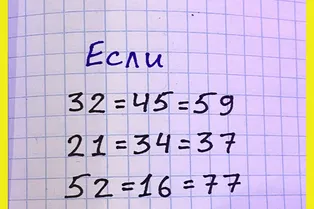 Если
32=45=59
21=34=37
52=16=77